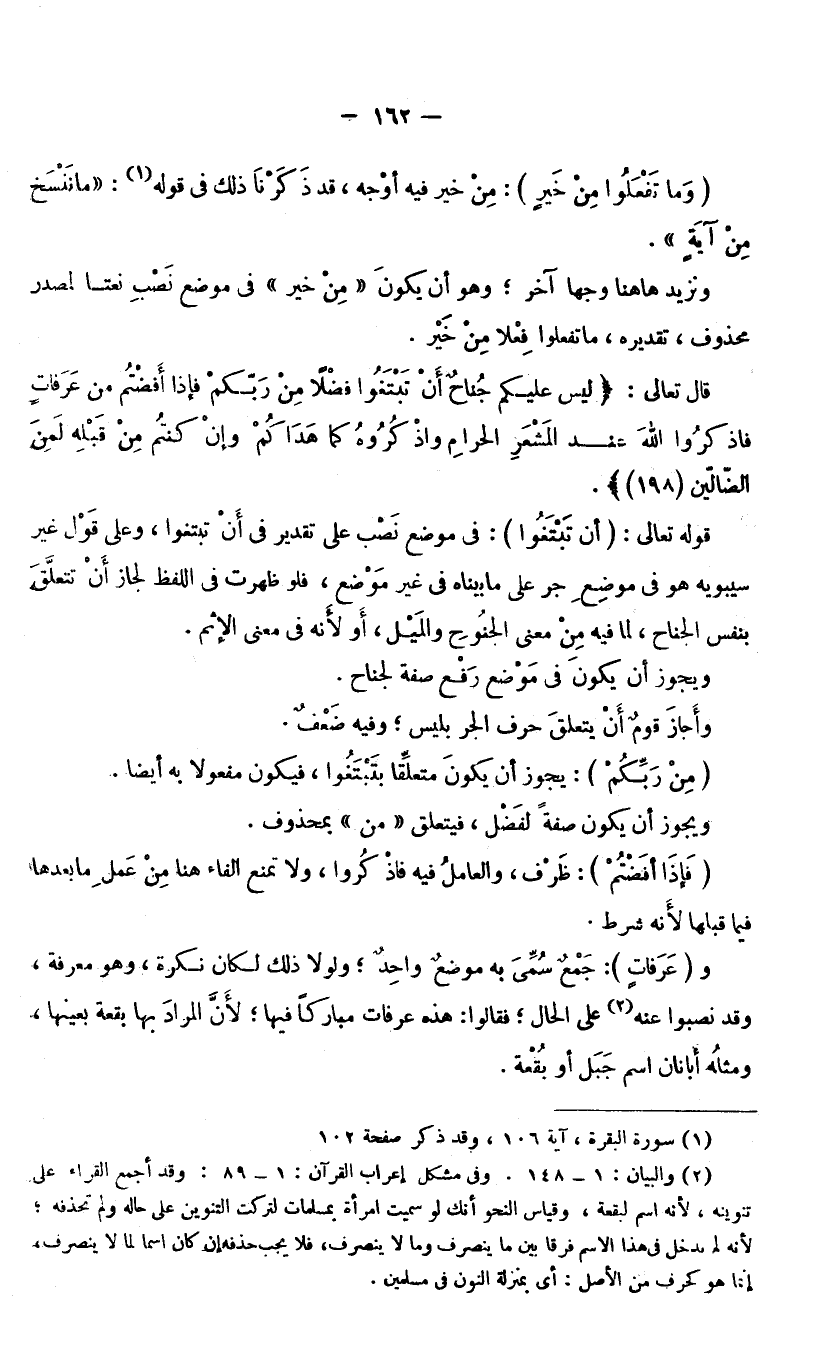 — ١٦٢ —
( وَما تَفْعَلُوا مِنْ خَيرٍ ) : مِنْ خير فيه أوْجه ، قد ذَكَرْنَا ذلك فى قوله(١) : «ماننَسْخ
مِنْ آيَةٍ » .
ونزيد هاهنا وجها آخر ؛ وهو أن يكونَ « مِنْ خير » فى موضع نَصْبِ نعتـا لمصدر
محذوف ، تقديره ، ماتفعلوا فِعْلا مِنْ خَيْر .
قال تعالى : ﴿ ليس عليـكم جُناحٌ أَنْ تَبْتَغُوا فضْلًا مِنْ رَبّـكمْ فإذا أَفضْتُم من عَرَفاتٍ
فاذكرُوا اللهَ عنـد المَشْعَرِ الحرامِ واذْكُرُوهُ كما هَدَاكُمْ وإنْ كنتُم مِنْ قَبْلِهِ لَمِنَ
الضّالّين (١٩٨)﴾ .
قوله تعالى : ( أن تَبْتَغُوا ) : فى موضع نَصْب على تقدير فى أَنْ تبتغوا ، وعلى قَوْل غير
سيبويه هو فى موضِعِ جر على مابيناه فى غير مَوْضع ، فلو ظهرت فى اللفظ لجاز أَنْ تتعلَّقَ
بنفس الجناح ، لما فيه مِنْ معنى الجنُوحِ والمَيْـل ، أَو لأَنه فى معنى الإثـم .
ويجوز أن يكونَ فى مَوْضع رَفْع صفة لجناح .
وأَجازَ قومٌ أَنْ يتعلقَ حرف الجر بليس ؛ وفيه ضَعْفٌ .
( مِنْ رَبِّـكُمْ ) : يجوز أن يكونَ متعلِّقا بتَبْتَغُوا ، فيكون مفعولا به أيضا .
ويجوز أن يكون صفةً لفَضْل ، فيتعلق « من » بمحذوف .
( فَإِذَا أفَضْتُمْ ) : ظَرْف ، والعاملُ فيه فاذْكُروا ، ولا تمنع الفاء هنا مِنْ عَملِ مابعدها
فيما قبلها لأَنه شرط .
و ( عَرَفاتٍ ): جَمْعٌ سُمِّىَ به موضعٌ واحِدٌ ؛ ولولا ذلك لـكان نـكرة ، وهو معرفة ،
وقد نصبوا عنه(٢) على الحال ؛ فقالوا: هذه عرفات مباركـاً فيها ؛ لأَنَّ المرادَ بها بقعة بعينها ،
ومثلُه أَبانان اسم جَبَل أو بُقْعة .
(١) سورة البقرة ، آية ١٠٦ ، وقد ذكر صفحة ١٠٢
(٢) والبيان : ١ ــ ١٤٨ . وفى مشكل إعراب القرآن : ١ ــ ٨٩ : وقد أجمع القراء على
تنوينه ، لأنه اسم لبقعة ، وقياس النحو أنك لو سميت امرأة بمسلمات لتركت التنوين على حاله ولم تحذفه ؛
لأنه لم يدخل فى هذا الاسم فرقا بين ما ينصرف وما لا ينصرف، فلا يجب حذفه إن كان اسما لما لا ينصرف،
إنما هو كحرف من الأصل : أى بمنزلة النون فى مسلمين .